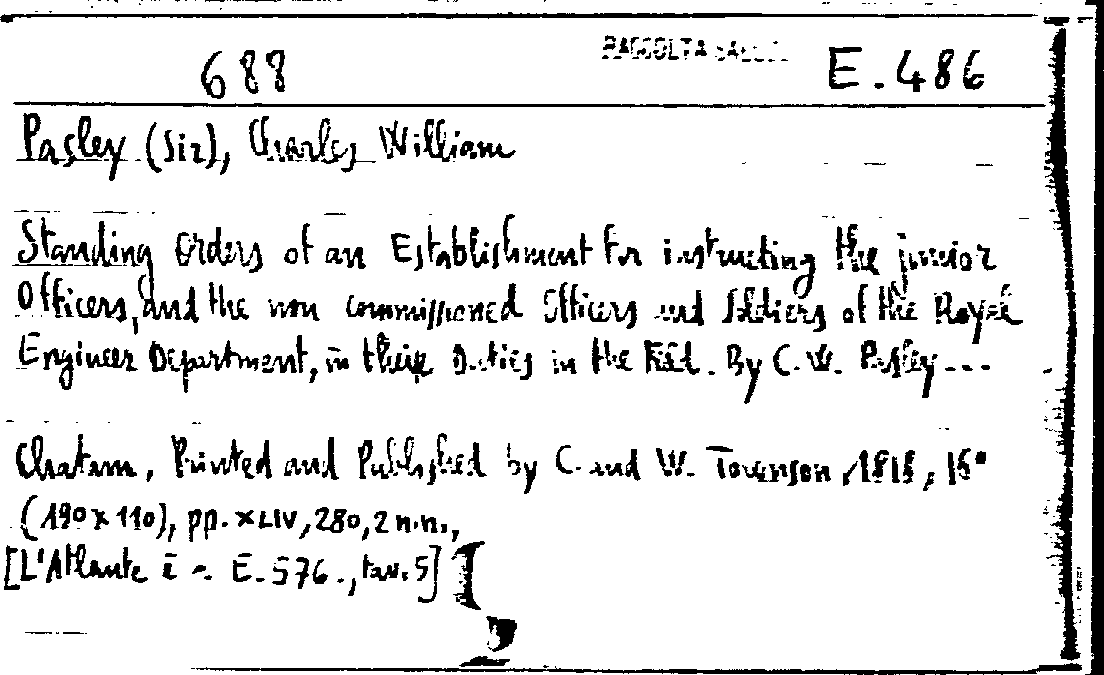 688 RACCOLTA E.486
Pasley (Sir), Charles William
Standing Orders of an Establishment for instructing the junior
Officers, and the non commissioned Officers and Soldiers of the Royal
Engineer Department, in their Duties in the Field. By C. W. Pasley ---
Chatam, Printed and Published by C. and W. Townson, 1818, 16°
(190x110), pp. XLIV, 280, 2 n.n.,
[L'Atlante è a E.576., tav. 5]